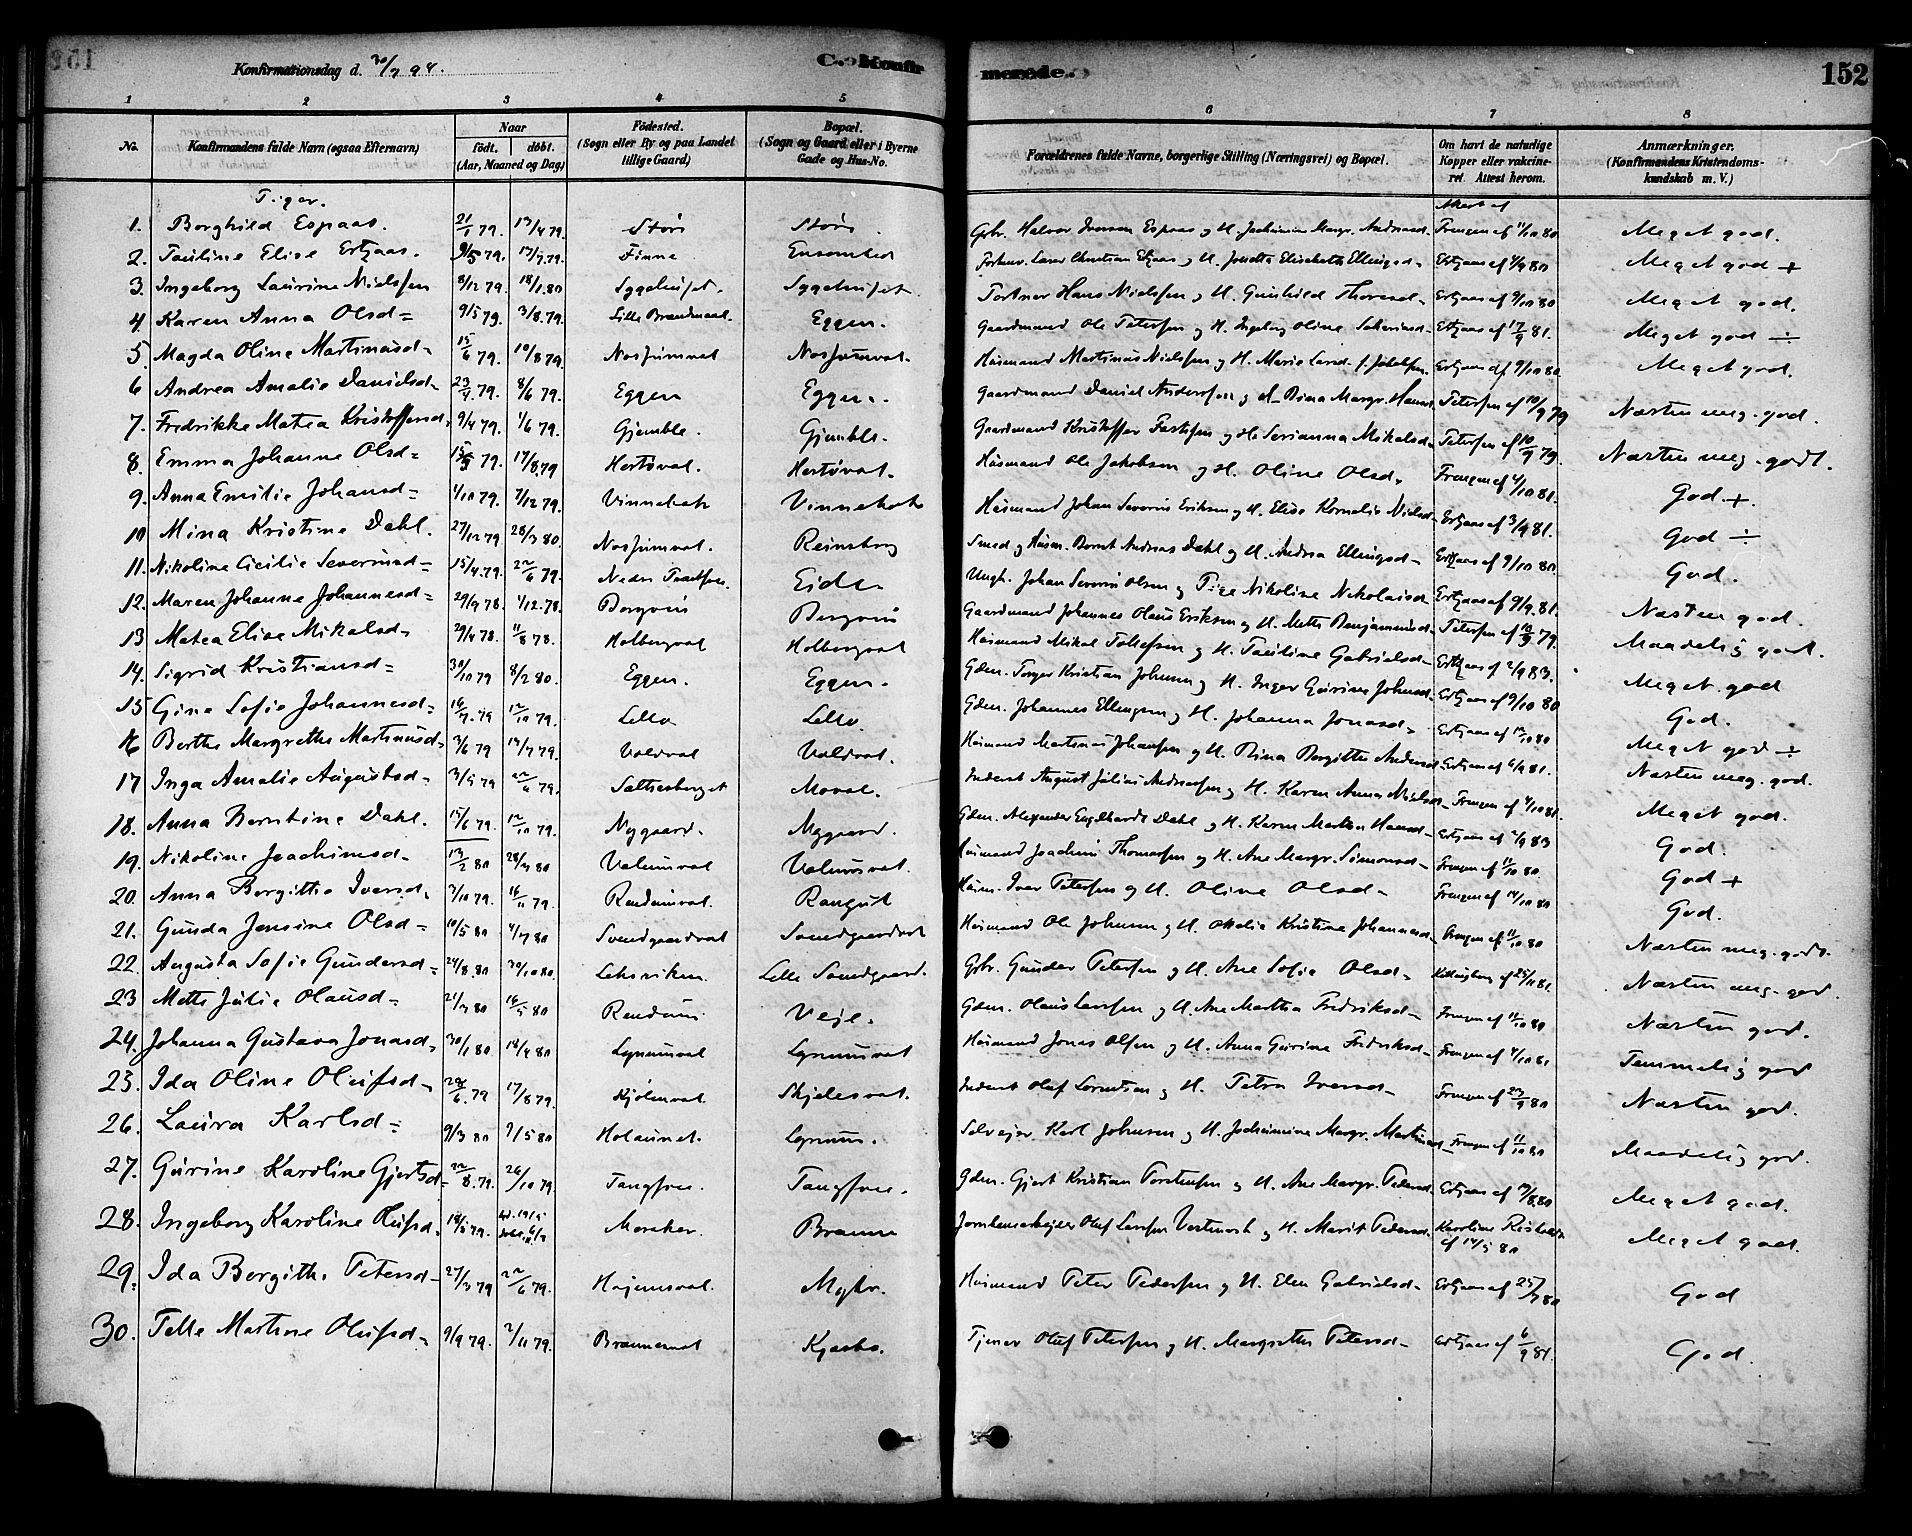 Konfirmationsdag d. 30/9 94. C. Konfirmerede. 152
1 2 3 4 5 6 7 8
No. Konfirmandens fulde Navn (ogsaa Efternavn) Naar födt. döbt. (Aar, Maaned og Dag) Födested. (Sogn eller By og paa Landet tillige Gaard) Bopæl. (Sogn og Gaard eller i Byerne Gade og Hus-No. Forældrenes fulde Navne, borgerlige Stilling (Næringsvei) og Bopæl. Om havt de naturlige Kopper eller vakcineret. Attest herom. Anmærkninger. (Konfirmandens Kristendomskundskab m. V.)
Piger.
1. Borghild Espaas. 21/1 79. 13/4 79. Störe Störe. Gbr. Halvor Iversen Espaas og H. Jochimine Margr. Andreasd. Frengen af 11/10 80 Meget god.
2. Pauline Elise Ertzaas. 9/5 79. 13/7.79. Finne Ensomhed Ertzaas af 4/9 80 Meget god +
3. Ingeborg Laurine Nielssen 8/12 79. 18/1.80 Sygehuset. Sygehuset. Portner Hans Nielssen og H. Gunhild Thoresd- Ertzaas af 9/10 80 Meget god.
4 Karen Anna Olsd= 9/5 79. 3/8.79. Lille Brandmoel. Eggen. Gaardmand Ole Petersen og H. Ingeborg Oline Ertzaas af 17/9 81. Meget god ÷
5. Magda Oline Martinusd- 15/6 79. 10/8 79. Nossumvat Nossumvat. Husmand Martinus Nielssen og H. Marie Ertzaas af 9/10 80. Meget god.
6 Andrea Amalie Danielsd- 23/4 79. 8/6 79. Eggen Eggen. Gaardmand Daniel Anderssen og H. Dina Margr. Hansd. Petersen af 10/9 79 Næsten meg. god.
7. Fredrikke Matea Kristoffersd. 9/4 79. 1/6 79. Gjemble. Gjemble. Gaardmand Kristoffer og H. Serianna Mikalsd- Petersen af 10/9 79. Næsten meg. godt.
8. Emma Johanne Olsd- 79. 17/8.79 Hertövat. Hertövat. Husmand Ole Jakobsen og H. Oline Olsd. Frengen af 4/10 81. God +.
9. Anna Emilie Johansd= 1/10 79. 7/12 79. Vinnebak Vinnebak Husmand Johan Severin Eriksen og H. Elise Kornelie Nielsd- Ertzaas af 3/9 81. God ÷
10 Mina Kristine Dahl. 27/12 79 28/3 80. Nossumvat. Reinsberg Smed og Husm. Bernt Andreas Dahl og H. Andrea Ellingsd- Ertzaas af 9/10 80. God.
11. Nikoline Cicilie Severinsd= 15/4.79. 22/6 79. Nedre Eide Ungk. Johan Severin Olsen og Pige Nikoline Nikolaisd- Ertzaas af 9/9.81. Næsten god.
12. Maren Johanne Johannesd= 29/9 78. 1/12.78. Borgvin Borgvin Gaardmand Johannes Olaus Eriksen og H. Mette Benjaminsd- Petersen af 10/9 79. Maadelig godt.
13 Matea Elise Mikalsd- 29/4 78. 11/8 78. Holbergvat Holbergvat Husmand Mikal Tollefsen og H. Pauline Gabrielsd- Ertzaas af 2/9 83. Meget god
14. Sigrid Kristiansd= 30/10 79 8/2 80. Eggen. Eggen. Gdm. Kristian Johnsen og H. Inger Gurine Johnsd- Ertzaas af 9/10 80 God.
15 Gina Sofie Johannesd- 79 12/10 79. Lello Lello. Gdm. Johannes Ellingsen og H. Johanna Jonasd- Ertzaas af 12/10 80 Meget god ÷
16 Berthe Margrethe Martinusd- 3/6 79 79. Valdvat Valdvat. Husmand Martinus Johansen og H. Dina Birgitte Andersd- Ertzaas af 6/9 81. Næsten meg. god.
17 Inga Amalie Augustsd- 3/5 79 22/6 79. Salthesberget Moval. Inderst August Julius Andreassen og H. Karen Anna Nielsd- Frengen af 4/10 81. Meget god.
18. Anna Berntine Dahl. 15/6 79. 12/10 79. Nygaard. Nygaard. Gdm. Alexander Engelhardt Dahl og H. Karen Martha Hansd- Ertzaas af 2/9 83 God.
19. Nikoline Joachimsd- 13/2 80 28/3 80 Valumsvat Valumsvat. Husmand Joachim Thomassen og H. Ane Margr. Simonsd- Frengen af 11/10 80. God +
20. Anna Bergitte Iversd. 3/10 79. 16/11 79. Rendumvat. Rangul Husm. Iver Petersen og H. Oline Olsd- Frengen af 14/10 80 God.
21. Gunda Jensine Olsd= 10/5 80 4/7 80 Svendgaardvat Svendgaardvat Husmand Ole Johnsen og H. Ottelie Kristine Johannesd- Frengen af 11/10 80 Næsten meg. godt.
22. Augusta Sofie Gundersd= 24/8.80 30/10 80. Leksviken. Lille Svendgaard. Gbr. Gunder Petersen og H. Ane Sofie Olsd- af 25/11 81. Næsten meg. god.
23 Mette Julie Olausd= 21/3 80 16/5 80 Rendum Veje. Gdm. Olaus Larssen og H. Ane Martha Fredriksd- Frengen af 11/10 80 Næsten god.
24. Johanna Gustava Jonasd. 30/1 80 18/4 80 Lynumvat Lynumvat Husmand Jonas Olsen og H. Anna Gurine Fredriksd- Frengen af 4/10 81 Temmelig god
25. Ida Oline Olufsd- 79 17/8 79. Kjölenvat Skjelesvat. Inderst Oluf Lorntsen og H. Petra Iversd- Frengen af 23/9 80 Næsten god.
26. Laura Karlsd= 9/3 80 9/5 80 Holaunet. Lynum. Selvejer Karl Johnsen og H. Jochimine Margr. Martinusd- Frengen af 11/10 80 Maadelig god.
27. Gurine Karoline Gjertsd- 22/8.79. 26/10 79. Tangfoss. Tangfoss. Gdm. Gjert Kristian Torstensen og H. Ane Margr. Pedersd. Ertzaas af 80 Meget god.
28. Ingeborg Karoline Olufsd. 79. Meraker. Braunen Jernbanearbejder Oluf Larssen Vestmark og H. Marit Pedersd. Karoline af 14/5 80 Meget god.
29. Ida Bergithe Petersd- 27/3 79 22/6 79. Højemsvat. Myhr. Husmand Peter Pedersen og H. Elen Gabrielsd- Ertzaas af 80 God
30. Pelle Martine Olufsd- 9/9 79. 2/11 79. Braunenvat Kjesbo. Tjener Oluf Petersen og H. Margrethe Petersd- Ertzaas af 6/9 81. God.